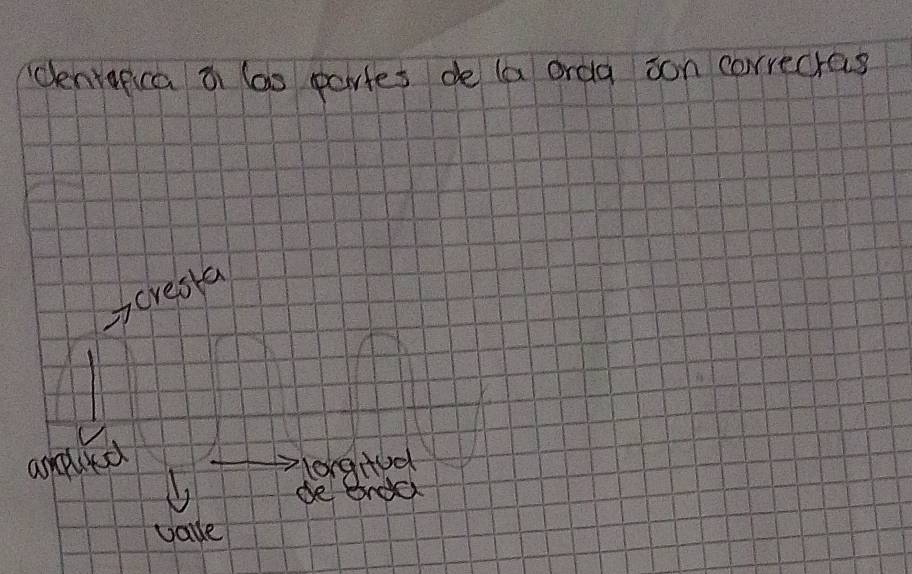 identifica si las partes de la onda son correctas
cresta
amplitud
longitud
de onda
valle